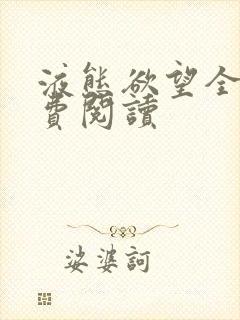 液態欲望全
費閱讀
娑婆訶